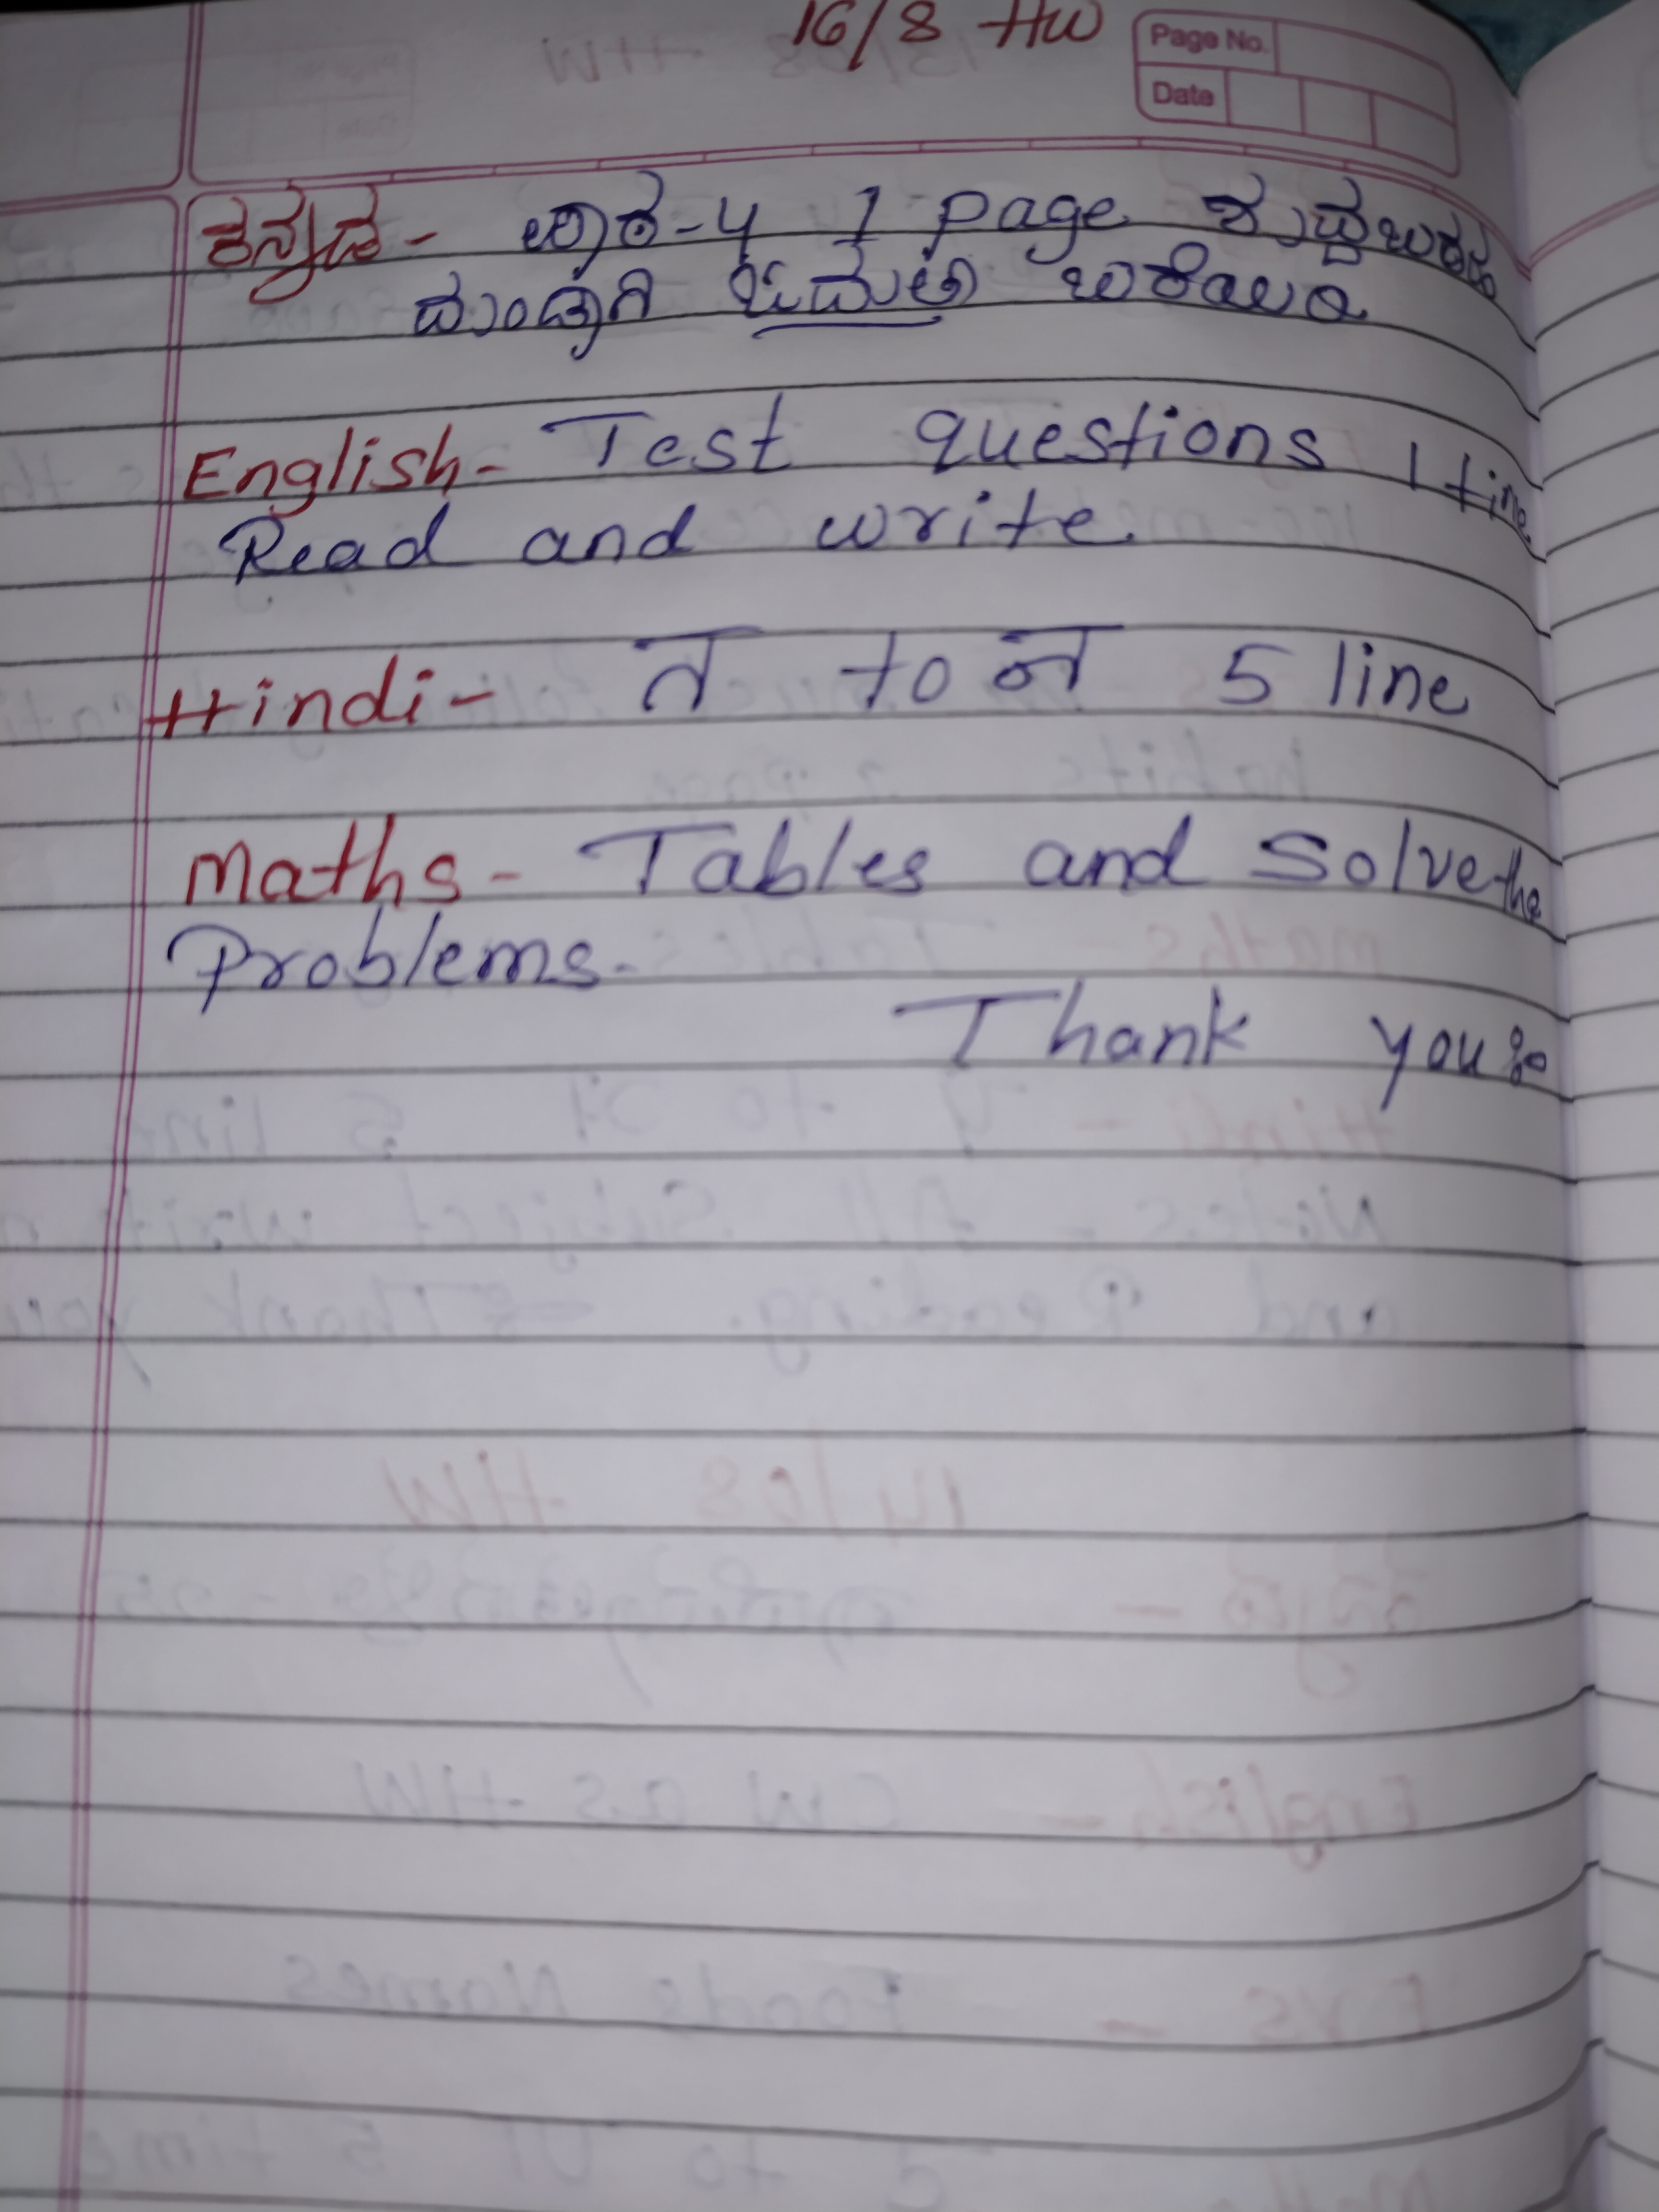 16/8 HW
Page No.
Date
ಕನ್ನಡ - ಪಾಠ-4 1 page ಶುದ್ಧಬರಹ
ದುಂಡಾಗಿ ಬರೆಯಿರಿ
English - Test questions 1 time
Read and write.
Hindi - त to न 5 line
Maths - Tables and Solve the
Problems.
Thank you